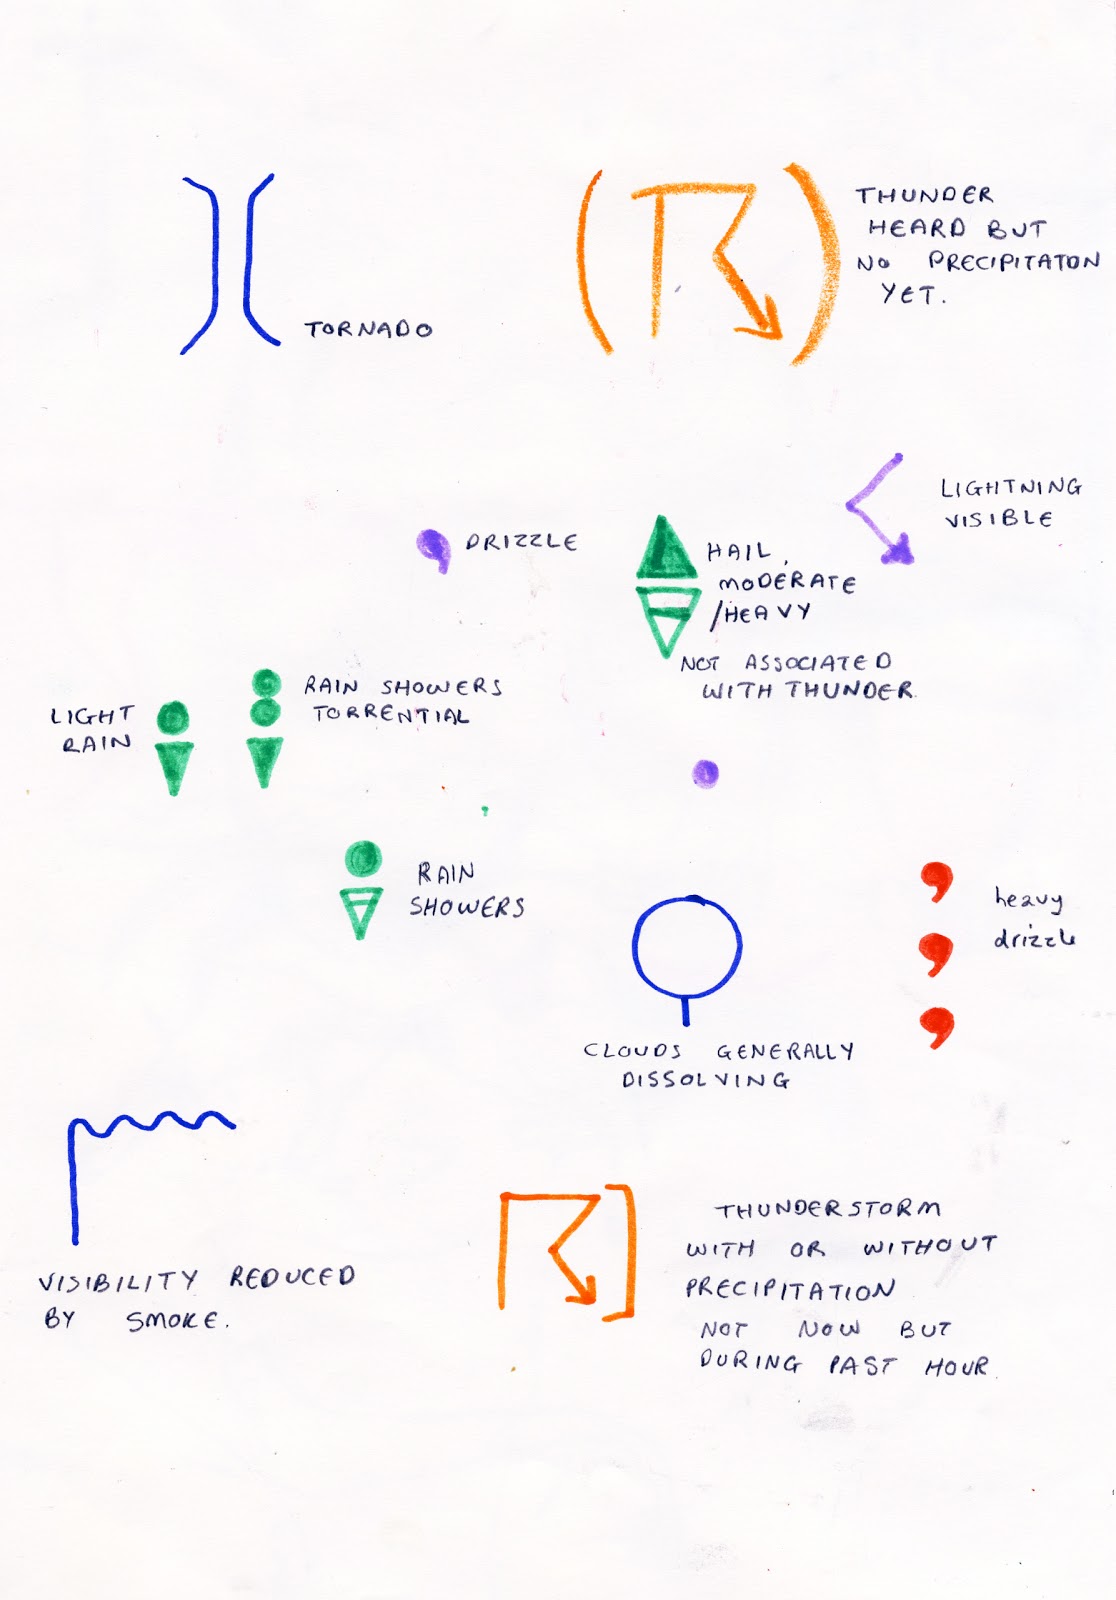 TORNADO
THUNDER
HEARD BUT
NO PRECIPITATON
YET.
LIGHTNING
VISIBLE
DRIZZLE
HAIL,
MODERATE
/HEAVY
NOT ASSOCIATED
WITH THUNDER.
LIGHT
RAIN
RAIN SHOWERS
TORRENTIAL
RAIN
SHOWERS
heavy
drizzle
CLOUDS GENERALLY
DISSOLVING
VISIBILITY REDUCED
BY SMOKE.
THUNDERSTORM
WITH OR WITHOUT
PRECIPITATION
NOT NOW BUT
DURING PAST HOUR.